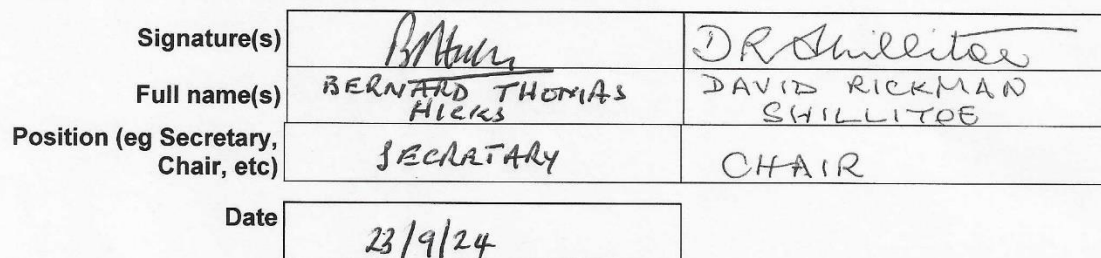 Signature(s) DR Shillitoe
Full name(s) BERNARD THOMAS HICKS DAVID RICKMAN SHILLITOE
Position (eg Secretary, Chair, etc) SECRETARY CHAIR
Date 23/9/24